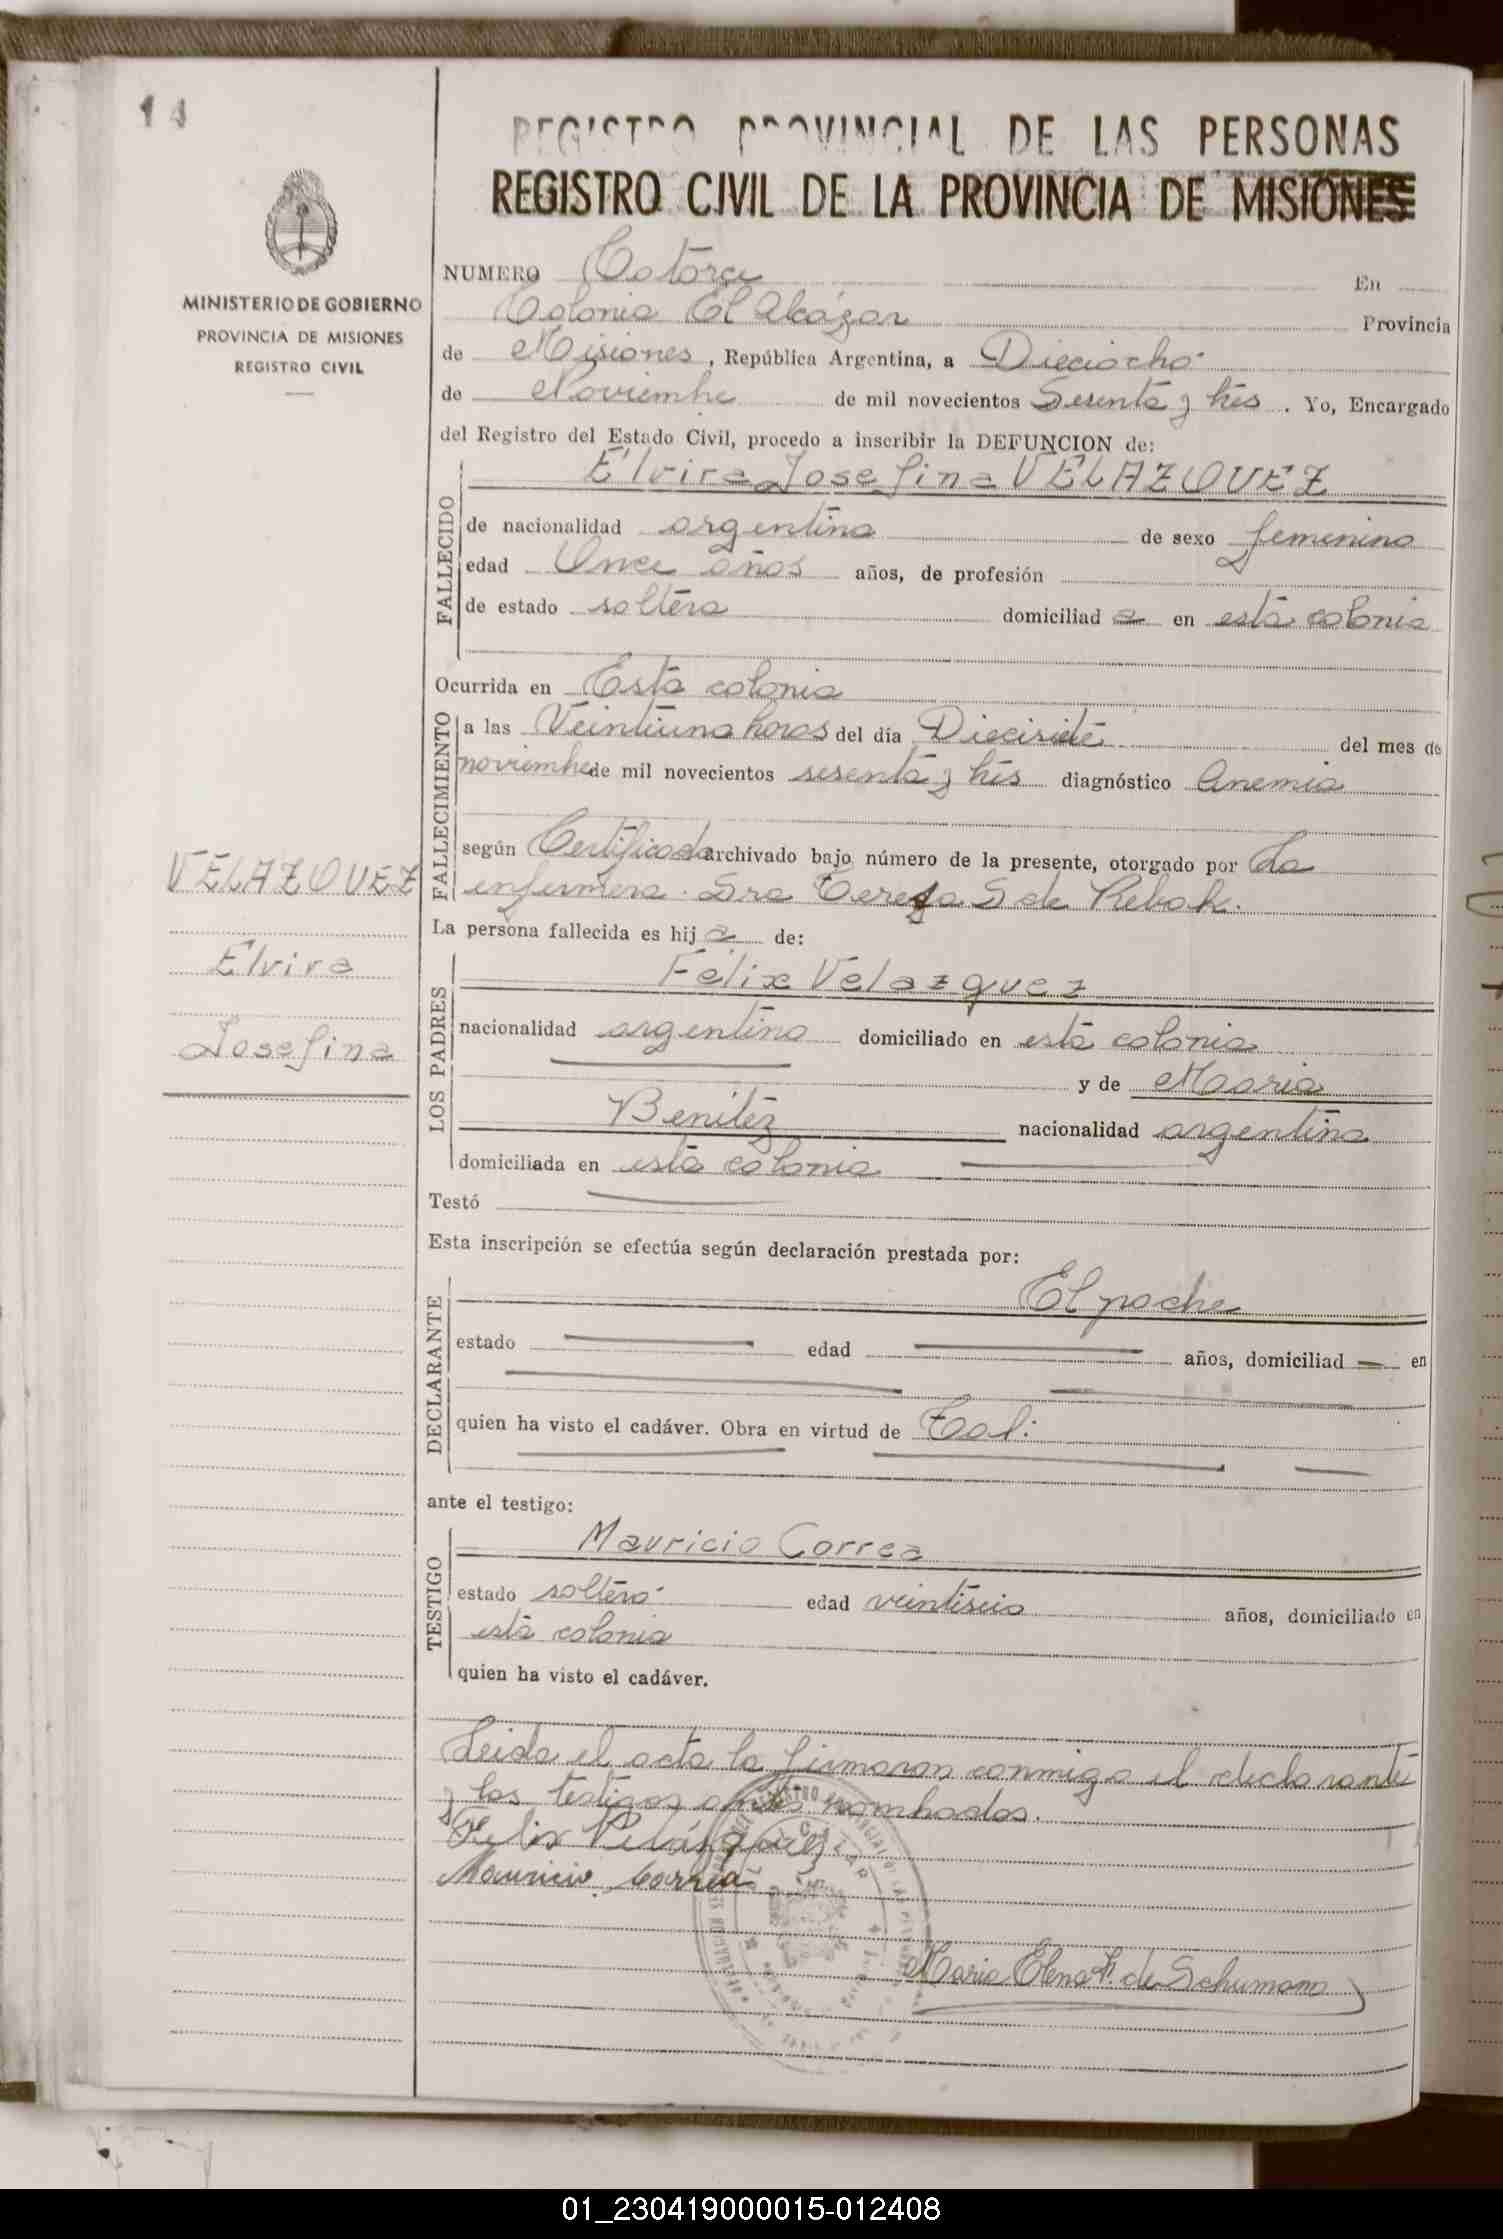 14
REGISTRO PROVINCIAL DE LAS PERSONAS
REGISTRO CIVIL DE LA PROVINCIA DE MISIONES
MINISTERIO DE GOBIERNO
PROVINCIA DE MISIONES
REGISTRO CIVIL
NUMERO Catorce En
Colonia El Alcázar Provincia
de Misiones, República Argentina, a Dieciocho
de Noviembre de mil novecientos Sesenta y tres. Yo, Encargado
del Registro del Estado Civil, procedo a inscribir la DEFUNCION de:
Elvira Josefina VELAZQUEZ
FALLECIDO
de nacionalidad argentina de sexo femenino
edad Once años años, de profesión
de estado soltera domiciliad a en esta colonia
Ocurrida en Esta colonia
FALLECIMIENTO
a las Veintiuna horas del día Diecisiete del mes de
noviembre de mil novecientos sesenta y tres diagnóstico Anemia
según Certificado archivado bajo número de la presente, otorgado por La
enfermera Sra Teresa S de Rebak.
VELAZQUEZ
Elvira
Josefina
La persona fallecida es hij a de:
LOS PADRES
Félix Velazquez
nacionalidad argentino domiciliado en esta colonia
y de Maria
Benitez nacionalidad argentina
domiciliada en esta colonia
Testó
Esta inscripción se efectúa según declaración prestada por:
DECLARANTE
El padre
estado edad años, domiciliad en
quien ha visto el cadáver. Obra en virtud de Tal.
ante el testigo:
TESTIGO
Mauricio Correa
estado soltero edad veintiseis años, domiciliado en
esta colonia
quien ha visto el cadáver.
Leida el acta la firmaron conmigo el declarante
y los testigos antes nombrados.
Felix Velázquez
Mauricio Correa
Maria Elena F. de Schumann
01_230419000015-012408